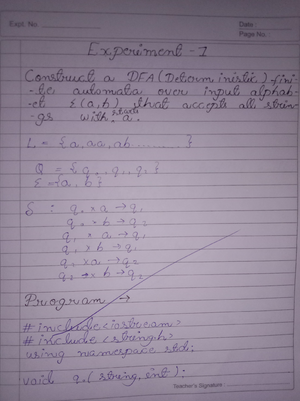 Expt. No.
Date :
Page No. :
Experiment - 1
Construct a DFA (Deterministic) fini-
-te automata over input alphab-
-et Σ(a,b) that accepts all strin
start
-gs with 'a'.
L = {a, aa, ab ......... }
Σ = {a, b}
δ :
q₁ × a → q₁
q₁ × b → q₁
Program →
# include <iostream>
# include <string.h>
using namespace std;
void (string, int);
Teacher's Signature :